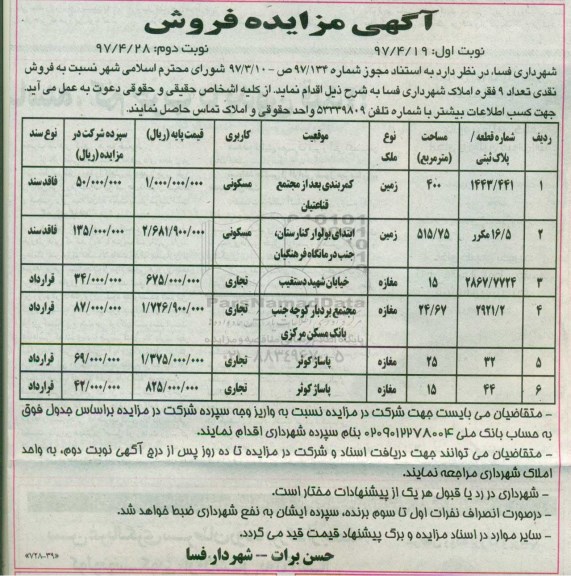 آگهی مزایده فروش
نوبت اول: ۹۷/۴/۱۹ نوبت دوم: ۹۷/۴/۲۸
شهرداری فسا، در نظر دارد به استناد مجوز شماره ۹۷/۱۳۴ ص - ۹۷/۳/۱۰ شورای محترم اسلامی شهر نسبت به فروش
نقدی تعداد ۹ فقره املاک شهرداری فسا به شرح ذیل اقدام نماید. از کلیه اشخاص حقیقی و حقوقی دعوت به عمل می آید.
جهت کسب اطلاعات بیشتر با شماره تلفن ۵۳۳۳۹۸۰۹ واحد حقوقی و املاک تماس حاصل نمایند.
ردیف شماره قطعه / پلاک ثبتی مساحت (مترمربع) نوع ملک موقعیت کاربری قیمت پایه (ریال) سپرده شرکت در مزایده (ریال) نوع سند
۱ ۱۴۴۳/۴۴۱ ۴۰۰ زمین کمربندی بعد از مجتمع قناعتیان مسکونی ۱/۰۰۰/۰۰۰/۰۰۰ ۵۰/۰۰۰/۰۰۰ فاقد سند
۲ ۱۶/۵ مکرر ۵۱۵/۷۵ زمین ابتدای بولوار کنارستان، جنب درمانگاه فرهنگیان مسکونی ۲/۶۸۱/۹۰۰/۰۰۰ ۱۳۵/۰۰۰/۰۰۰ فاقد سند
۳ ۲۸۶۷/۷۷۲۴ ۱۵ مغازه خیابان شهید دستغیب تجاری ۶۷۵/۰۰۰/۰۰۰ ۳۴/۰۰۰/۰۰۰ قرارداد
۴ ۲۹۲۱/۲ ۲۴/۶۷ مغازه مجتمع بردبار کوچه جنب بانک مسکن مرکزی تجاری ۱/۷۲۶/۹۰۰/۰۰۰ ۸۷/۰۰۰/۰۰۰ قرارداد
۵ ۳۲ ۲۵ مغازه پاساژ کوثر تجاری ۱/۳۷۵/۰۰۰/۰۰۰ ۶۹/۰۰۰/۰۰۰ قرارداد
۶ ۴۴ ۱۵ مغازه پاساژ کوثر تجاری ۸۲۵/۰۰۰/۰۰۰ ۴۲/۰۰۰/۰۰۰ قرارداد
ParsNamadData
- متقاضیان می بایست جهت شرکت در مزایده نسبت به واریز وجه سپرده شرکت در مزایده براساس جدول فوق
به حساب بانک ملی ۰۲۰۹۰۱۲۲۷۸۰۰۴ بنام سپرده شهرداری اقدام نمایند.
- متقاضیان می توانند جهت دریافت اسناد و شرکت در مزایده تا ده روز پس از درج آگهی نوبت دوم، به واحد
املاک شهرداری مراجعه نمایند.
- شهرداری در رد یا قبول هر یک از پیشنهادات مختار است.
- درصورت انصراف نفرات اول تا سوم برنده، سپرده ایشان به نفع شهرداری ضبط خواهد شد.
- سایر موارد در اسناد مزایده و برگ پیشنهاد قیمت قید می گردد.
حسن برات - شهردار فسا
«۷۲۸-۳۹»